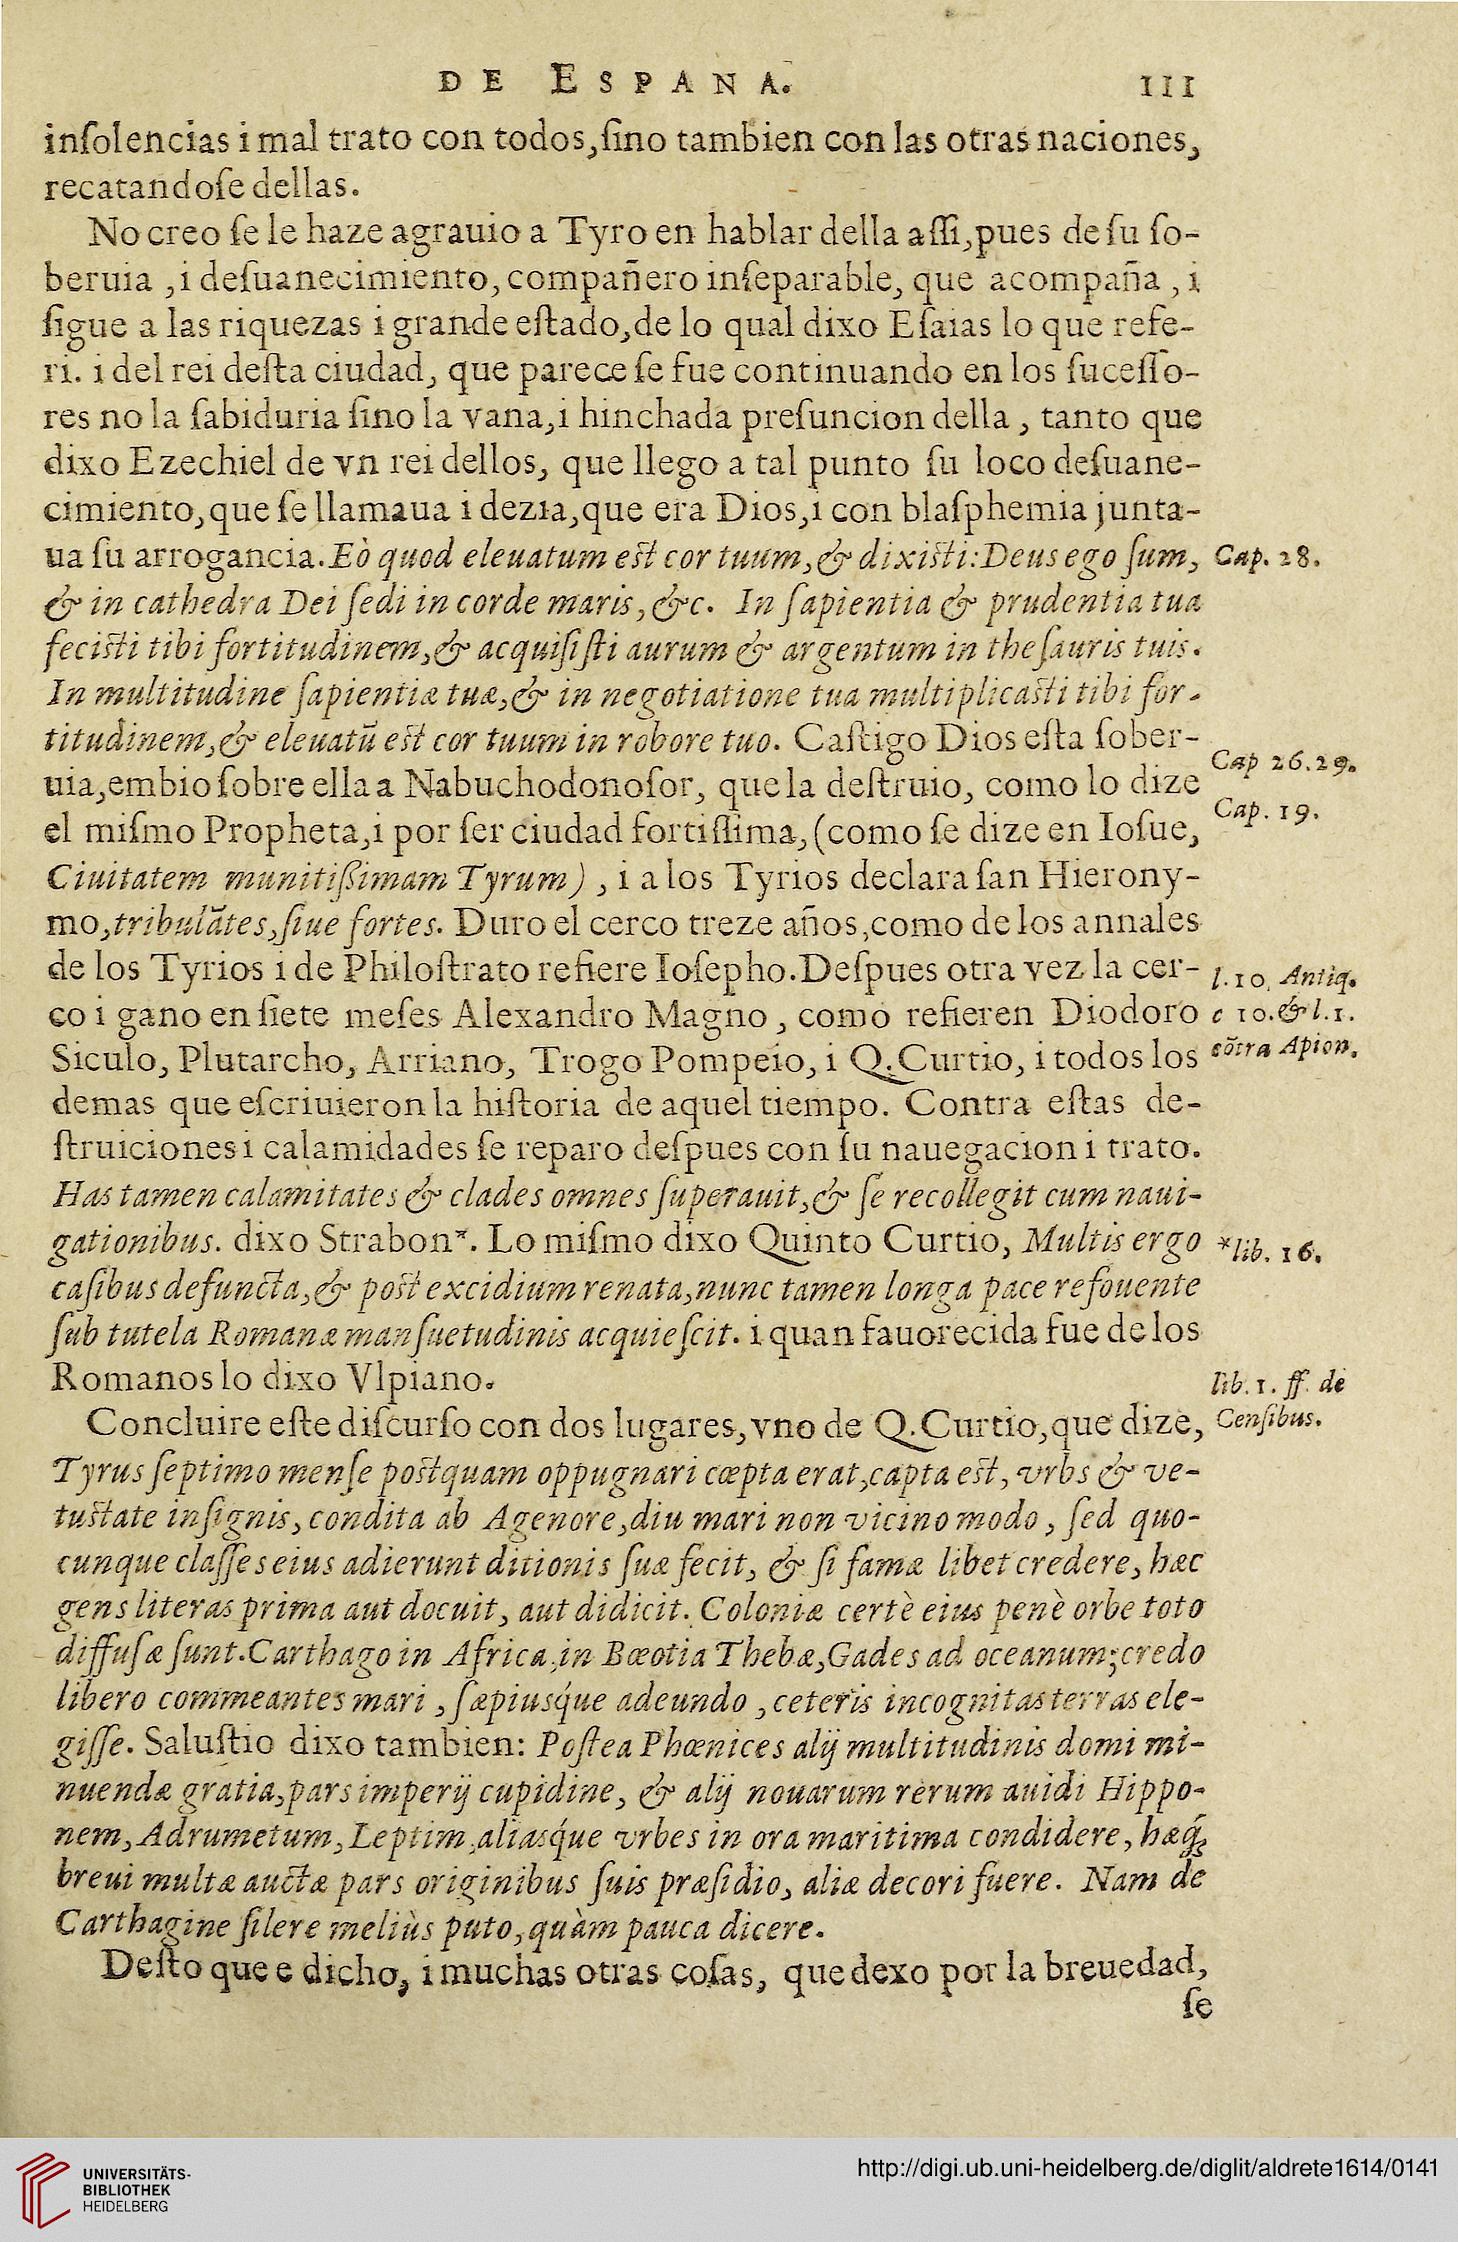 DE ESPANA. 111
inſolencias i mal trato con todos, ſino tambien con las otras naciones,
recatandoſe dellas.
No creo ſe le haze agrauio a Tyro en hablar della aſſi, pues de ſu ſo-
beruia , i deſuanecimiento, compañero inſeparable, que acompaña , i
ſigue a las riquezas i grande eſtado, de lo qual dixo Eſaias lo que refe-
ri. i del rei deſta ciudad, que parece ſe fue continuando en los ſuceſſo-
res no la ſabiduria ſino la vana, i hinchada preſuncion della , tanto que
dixo Ezechiel de vn rei dellos, que llego a tal punto ſu loco deſuane-
cimiento, que ſe llamaua i dezia, que era Dios, i con blaſphemia junta-
ua ſu arrogancia. Eò quod eleuatum est cor tuum, & dixisti: Deus ego ſum, Cap. 28.
& in cathedra Dei ſedi in corde maris, &c. In ſapientia & prudentia tua
fecisti tibi fortitudinem, & acquiſiſti aurum & argentum in theſauris tuis.
In multitudine ſapientiæ tuæ, & in negotiatione tua multiplicasti tibi for-
titudinem, & eleuatũ est cor tuum in robore tuo. Caſtigo Dios eſta ſober-
uia, embio ſobre ella a Nabuchodonoſor, que la deſtruio, como lo dize Cap 26.29.
el miſmo Propheta, i por ſer ciudad fortiſſima, (como ſe dize en Ioſue, Cap. 19.
Ciuitatem munitiſsimam Tyrum) , i a los Tyrios declara ſan Hierony-
mo, tribulãtes, ſiue fortes. Duro el cerco treze años, como de los annales
de los Tyrios i de Philoſtrato refiere Ioſepho. Deſpues otra vez la cer- l. 10. Antiq.
co i gano en ſiete meſes Alexandro Magno , como refieren Diodoro c 10. & l. 1.
Siculo, Plutarcho, Arriano, Trogo Pompeio, i Q. Curtio, i todos los cõtra Apion.
demas que eſcriuieron la hiſtoria de aquel tiempo. Contra eſtas de-
ſtruiciones i calamidades ſe reparo deſpues con ſu nauegacion i trato.
Has tamen calamitates & clades omnes ſuperauit, & ſe recollegit cum naui-
gationibus. dixo Strabon*. Lo miſmo dixo Quinto Curtio, Multis ergo *lib. 16.
caſibus defuncta, & post excidium renata, nunc tamen longa pace refouente
ſub tutela Romanæ manſuetudinis acquieſcit. i quan fauorecida fue de los
Romanos lo dixo Vlpiano. lib. 1. ff. de
Concluire eſte diſcurſo con dos lugares, vno de Q. Curtio, que dize, Cenſibus.
Tyrus ſeptimo menſe postquam oppugnari cœpta erat, capta est, vrbs & ve-
tustate inſignis, condita ab Agenore, diu mari non vicino modo , ſed quo-
cunque claſſes eius adierunt ditionis ſuæ fecit, & ſi famæ libet credere, hæc
gens literas prima aut docuit, aut didicit. Coloniæ certè eius penè orbe toto
diffuſæ ſunt. Carthago in Africa, in Bœotia Thebæ, Gades ad oceanum; credo
libero commeantes mari , ſæpiusq́ue adeundo , ceteris incognitas terras ele-
giſſe. Saluſtio dixo tambien: Poſtea Phœnices alij multitudinis domi mi-
nuendæ gratia, pars imperij cupidine, & alij nouarum rerum auidi Hippo-
nem, Adrumetum, Leptim, aliasq́ue vrbes in ora maritima condidere, hæq́;
breui multæ auctæ pars originibus ſuis præſidio, aliæ decori fuere. Nam de
Carthagine ſilere meliùs puto, quàm pauca dicere.
Deſto que e dicho, i muchas otras coſas, que dexo por la breuedad,
ſe
UNIVERSITÄTS-
BIBLIOTHEK
HEIDELBERG
http://digi.ub.uni-heidelberg.de/diglit/aldrete1614/0141